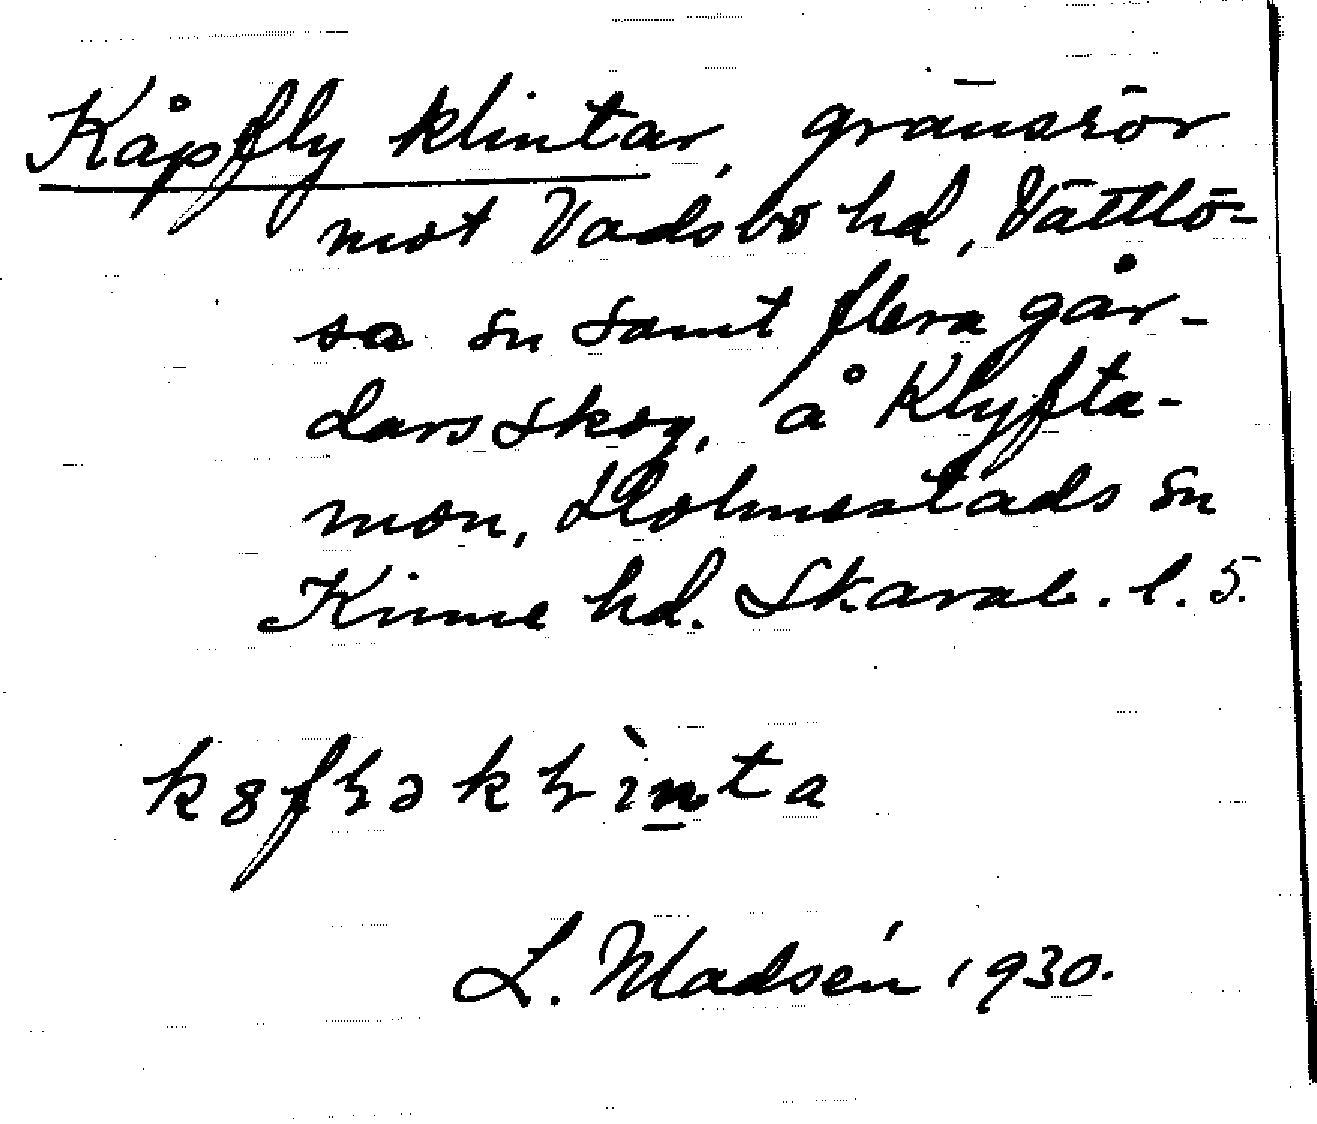 Kåpfly klintar, gränsrör
mot Vadsbo hd, Vättlö-
sa sn samt flera går-
dars skog, å Klyfta-
mon, Holmestads sn
Kinne hd. Skarab. l. S.
L. Madsén 1930.